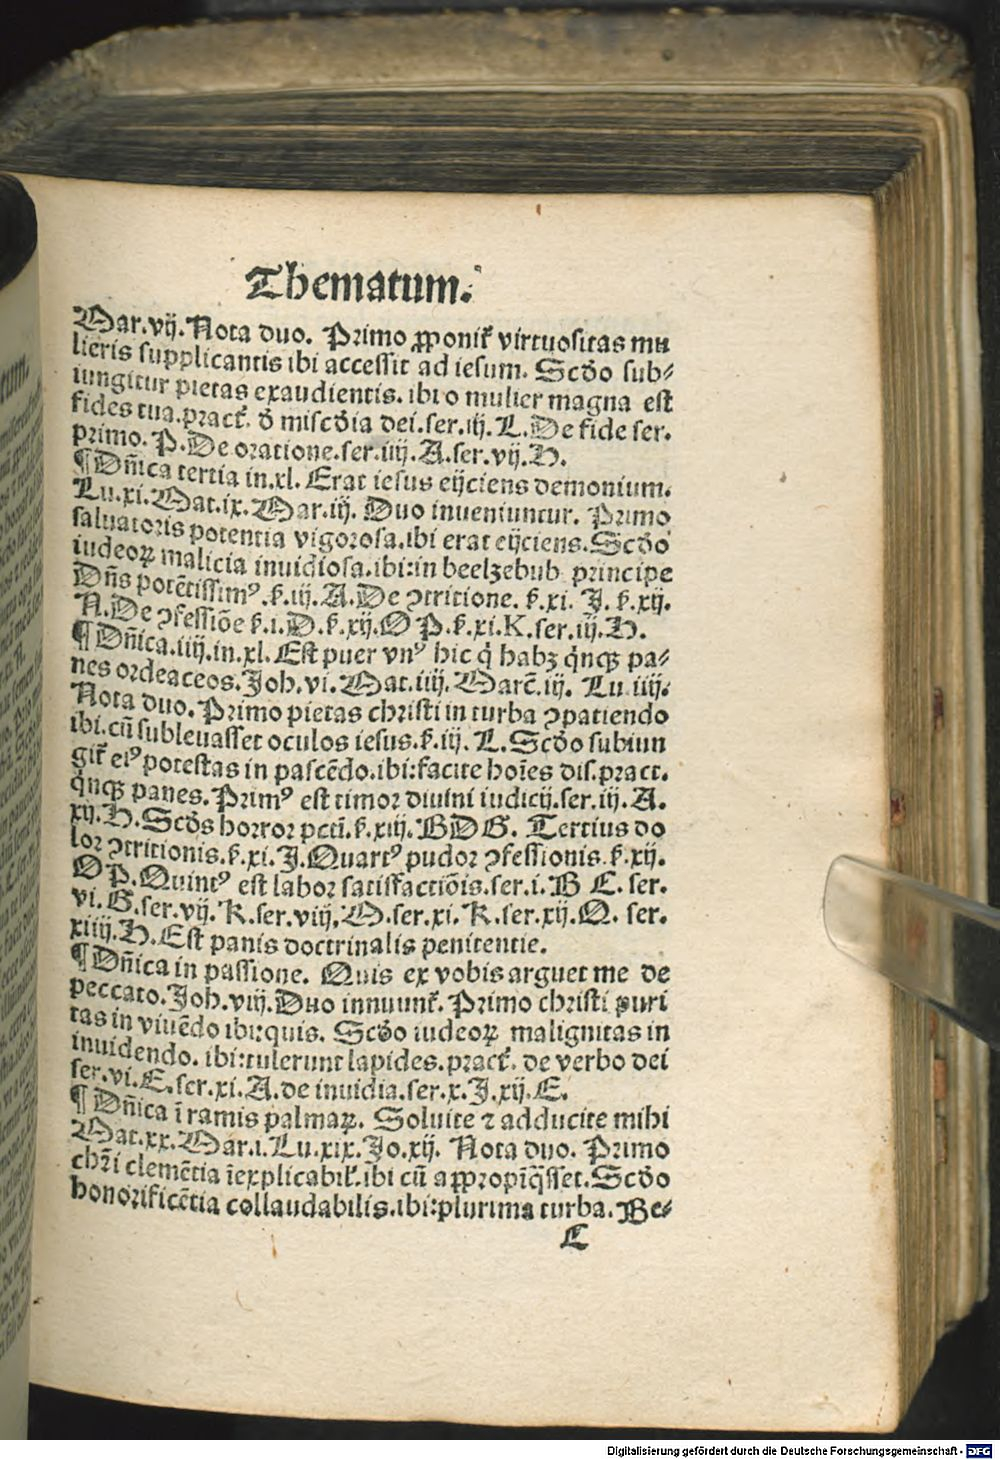 Thematum.
Mar.vij. Nota duo. Primo ꝓponit᷑ virtuositas mu
lieris supplicantis ibi accessit ad iesum. Scd̄o sub⸗
iungitur pietas exaudientis. ibi o mulier magna est
fides tua. pract᷑. d̄ miscd̄ia dei. ser. iij. L. De fide ser.
primo. P. De oratione. ser. iiij. A. ser. vij. H.
¶ Dn̄ica tertia in .xl. Erat iesus eijciens demonium.
Lu.xi. Mat.ix. Mar.iij. Duo inueniuntur. Primo
saluatoris potentia vigorosa. ibi erat eijciens. Scd̄o
iudeoꝝ malicia inuidiosa. ibi: in beelzebub principe
Dn̄s potētissimꝰ. ẜ. iij. A. De ↄtritione. ẜ. xi. J. ẜ. xij.
N. De ↄfessiōe ẜ. i. D. ẜ. xij. O P. ẜ. xi. K. ser. iij. H.
¶ Dn̄ica .iiij. in .xl. Est puer vnꝰ hic q̇ habꝫ q̇nqꝫ pa⸗
nes ordeaceos. Joh. vi. Mat. iiij. Marc̄. ij. Lu. iiij.
Nota duo. Primo pietas christi in turba ↄpatiendo
ibi. cū subleuasset oculos iesus. ẜ. iij. L. Scd̄o subiun
git᷑ eiꝰ potestas in pascēdo. ibi: facite hoīes dis. pract.
q̇nqꝫ panes. Primꝰ est timor diuini iudicij. ser. iij. A.
xij. H. Scd̄s horror pctī. ẜ. xiij. BDG. Tertius do
lor ↄtritionis. ẜ. xi. J. Quartꝰ pudor ↄfessionis. ẜ. xij.
O P. Quintꝰ est labor satisfactiōis. ser. i. B C. ser.
vi. G. ser. vij. K. ser. viij. O. ser. xi. K. ser. xij. Q. ser.
xiiij. H. Est panis doctrinalis penitentie.
¶ Dn̄ica in passione. Quis ex vobis arguet me de
peccato. Joh. viij. Duo innuunt᷑. Primo christi puri
tas in viuēdo ibi: quis. Scd̄o iudeoꝝ malignitas in
inuidendo. ibi: tulerunt lapides. pract᷑. de verbo dei
ser. vi. E. ser. xi. A. de inuidia. ser. x. J. xij. E.
¶ Dn̄ica ī ramis palmaꝝ. Soluite ⁊ adducite mihi
Mat. xx. Mar. i. Lu. xix. Jo. xij. Nota duo. Primo
chr̄i clemētia īexplicabil᷑. ibi cū aꝓpropīq̄sset. Scd̄o
honorificētia collaudabilis. ibi: plurima turba. Be⸗
C
Digitalisierung gefördert durch die Deutsche Forschungsgemeinschaft - DFG